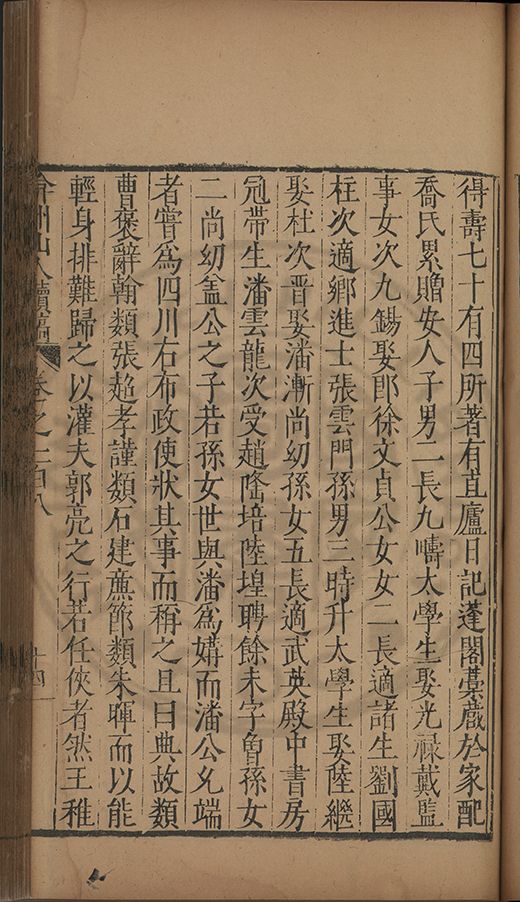 得壽七十有四所著有直廬日記蓬閣藁藏於家配
喬氏累贈安人子男二長九疇太學生娶光祿戴監
事女次九錫娶郎徐文貞公女女二長適諸生劉國
柱次適鄉進士張雲門孫男三時升太學生娶陸繼
娶杜次晋娶潘漸尚幼孫女五長適武英殿中書房
冠帶生潘雲龍次受趙隆培陸堭聘餘未字曾孫女
二尚幼盖公之子若孫女世與潘為媾而潘公允端
者嘗為四川右布政使狀其事而稱之且曰典故類
曹褒辭翰類張趙孝謹類石建亷節類朱暉而以能
輕身排難歸之以灌夫郭亮之行若任俠者然王稚
弇州山人續稿 卷之一百八 十四